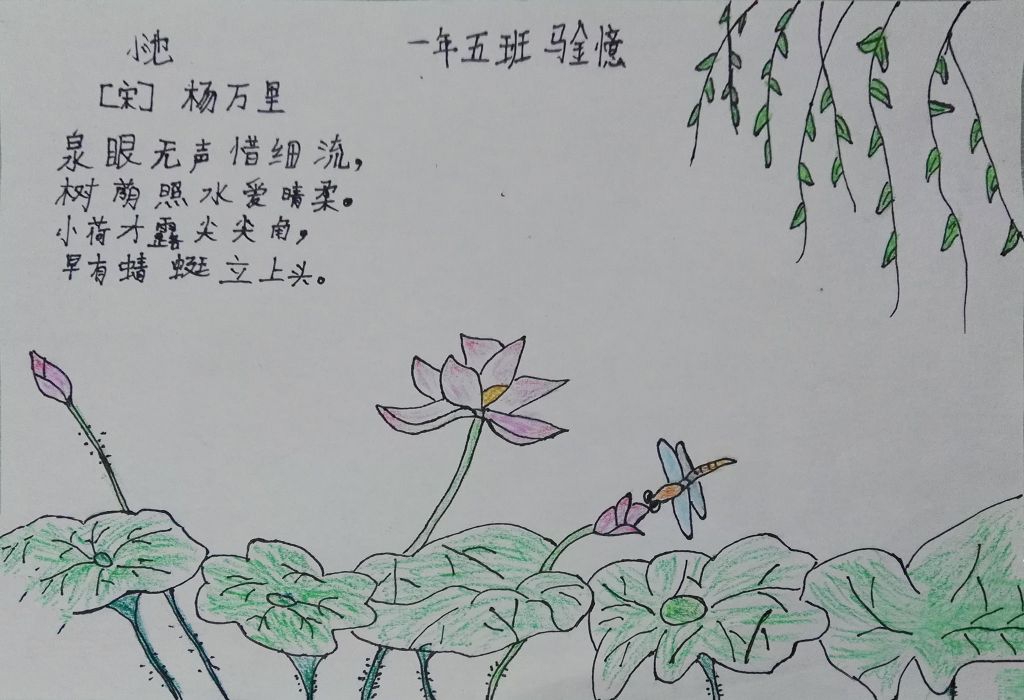 小池
一年五班 骆金憶
[宋] 杨万里
泉眼无声惜细流，
树荫照水爱晴柔。
小荷才露尖尖角，
早有蜻蜓立上头。